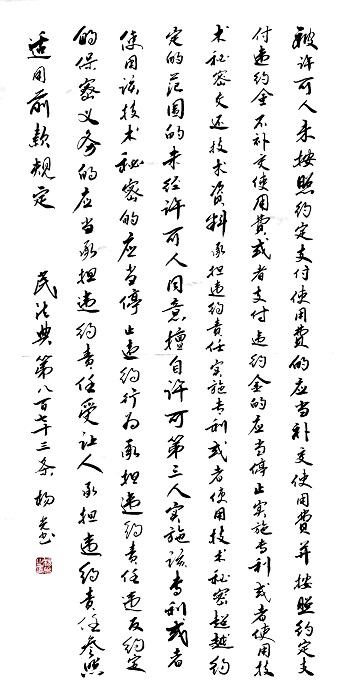 被许可人未按照约定支付使用費的应当补交使用費并按照约定支
付违约金不补交使用費或者支付违约金的应当停止实施专利或者使用技
术秘密交还技术资料承担违约责任实施专利或者使用技术秘密超越约
定的范围的未经许可人同意擅自许可第三人实施该专利或者
使用该技术秘密的应当停止违约行为承担违约责任违反约定
的保密义务的应当承担违约责任受让人承担违约责任参照
适用前款规定 民法典第八百七十三条 杨光书